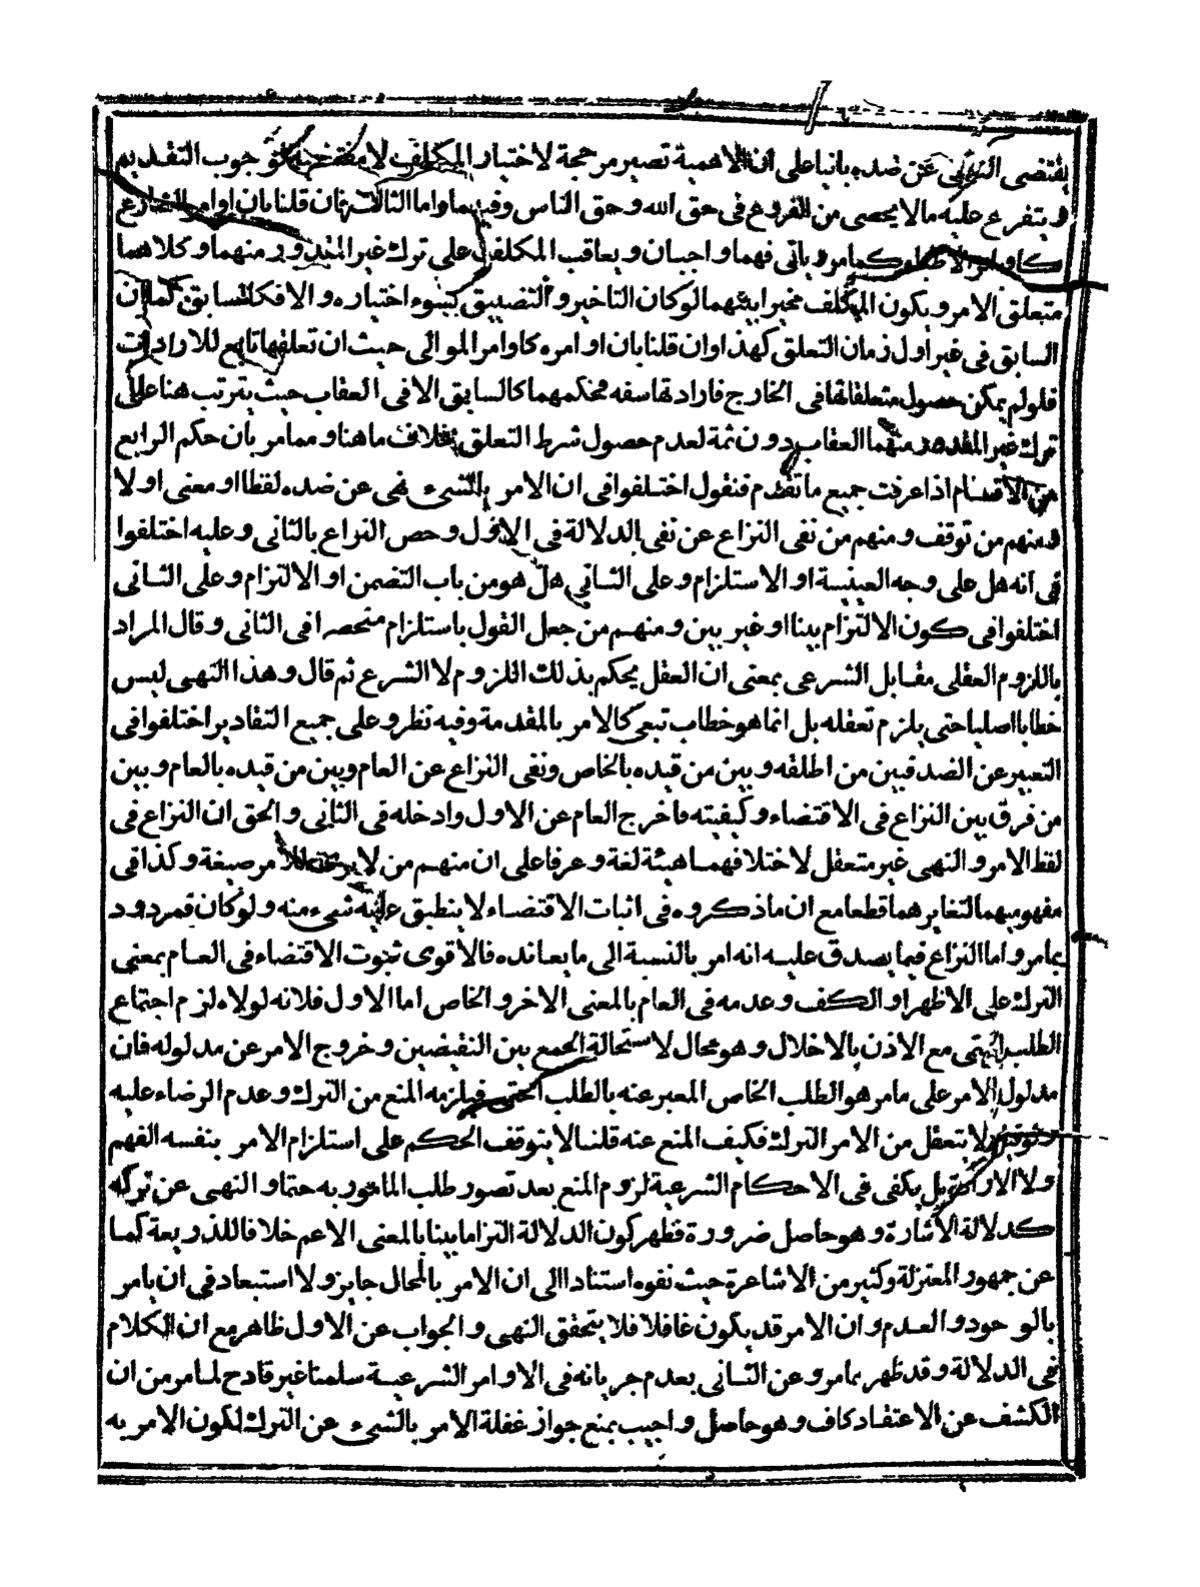 يقتضى النهى عن ضده بانيا على ان الاهمية تصير مرجحة لاختيار المكلف لا مقتضية لوجوب التقديم
ويتفرع عليه مالا يحصى من الفروع فى حق الله وحق الناس وفيهما واما الثالث فان قلنا بان اوامر الشارع
كاوامر الاطباء كما مر وياتى فهما واجبان ويعاقب المكلف على ترك غير المقدور منهما وكلاهما
متعلق الامر ويكون المكلف مخيرا بينهما لو كان التاخير والتضييق بسوء اختياره والا فكالسابق كما ان
السابق فى غير اول زمان التعلق كهذا وان قلنا بان اوامره كاوامر الموالى حيث ان تعلقها تابع للارادات
فلو لم يمكن حصول متعلقاتها فى الخارج فارادتها سفه فحكمهما كالسابق الا فى العقاب حيث يترتب هنا على
ترك غير المقدور منهما العقاب دون ثمة لعدم حصول شرط التعلق بخلاف ما هنا ومما مر بان حكم الرابع
من الاقسام اذا عرفت جميع ما تقدم فنقول اختلفوا فى ان الامر بالشىء نهى عن ضده لفظا او معنى او لا
ومنهم من توقف ومنهم من نفى النزاع عن نفى الدلالة فى الاول وخص النزاع بالثانى وعليه اختلفوا
فى انه هل على وجه العينية او الاستلزام وعلى الثانى هل هو من باب التضمن او الالتزام وعلى الثانى
اختلفوا فى كون الالتزام بينا او غير بين ومنهم من جعل القول باستلزام منحصرا فى الثانى وقال المراد
باللزوم العقلى مقابل الشرعى بمعنى ان العقل يحكم بذلك اللزوم لا الشرع ثم قال وهذا النهى ليس
خطابا اصليا حتى يلزم تعقله بل انما هو خطاب تبعى كالامر بالمقدمة وفيه نظر وعلى جميع التقادير اختلفوا فى
التعبير عن الضد فبين من اطلقه وبين من قيده بالخاص ونفى النزاع عن العام وبين من قيده بالعام وبين
من فرق بين النزاع فى الاقتضاء وكيفيته فاخرج العام عن الاول وادخله فى الثانى والحق ان النزاع فى
لفظ الامر والنهى غير متعقل لاختلافهما هيئة لغة وعرفا على ان منهم من لا يرى للامر صيغة وكذا فى
مفهوميهما لتغايرهما قطعا مع ان ما ذكروه فى اثبات الاقتضاء لا ينطبق عليه شىء منه ولو كان فمردود
بما مر واما النزاع فيما يصدق عليه انه امر بالنسبة الى ما يعانده فالاقوى ثبوت الاقتضاء فى العام بمعنى
الترك على الاظهر او الكف وعدمه فى العام بالمعنى الاخر والخاص اما الاول فلانه لولاه لزم اجتماع
الطلب الحتمى مع الاذن بالاخلال وهو محال لاستحالة الجمع بين النقيضين وخروج الامر عن مدلوله فان
مدلول الامر على ما مر هو الطلب الخاص المعبر عنه بالطلب الحتمى فيلزمه المنع من الترك وعدم الرضاء عليه
لا يتعقل من الامر الترك فكيف المنع عنه قلنا لا يتوقف الحكم على استلزام الامر بنفسه الفهم
ولا الارادة بل يكفى فى الاحكام الشرعية لزوم المنع بعد تصور طلب الماخور به حتما والنهى عن تركه
كدلالة الاشارة وهو حاصل ضرورة فظهر كون الدلالة التزاما بينا بالمعنى الاعم خلافا للذريعة كما
عن جمهور المعتزلة وكثير من الاشاعرة حيث نفوه استنادا الى ان الامر بالمحال جايز ولا استبعاد فى ان يامر
بالوجود والعدم وان الامر قد يكون غافلا فلا يتحقق النهى والجواب عن الاول ظاهر مع ان الكلام
فى الدلالة وقد ظهر بما مر وعن الثانى بعدم جريانه فى الاوامر الشرعية سلمنا غير قادح لما مر من ان
الكشف عن الاعتقاد كاف وهو حاصل واجيب بمنع جواز غفلة الامر بالشىء عن الترك لكون الامر به